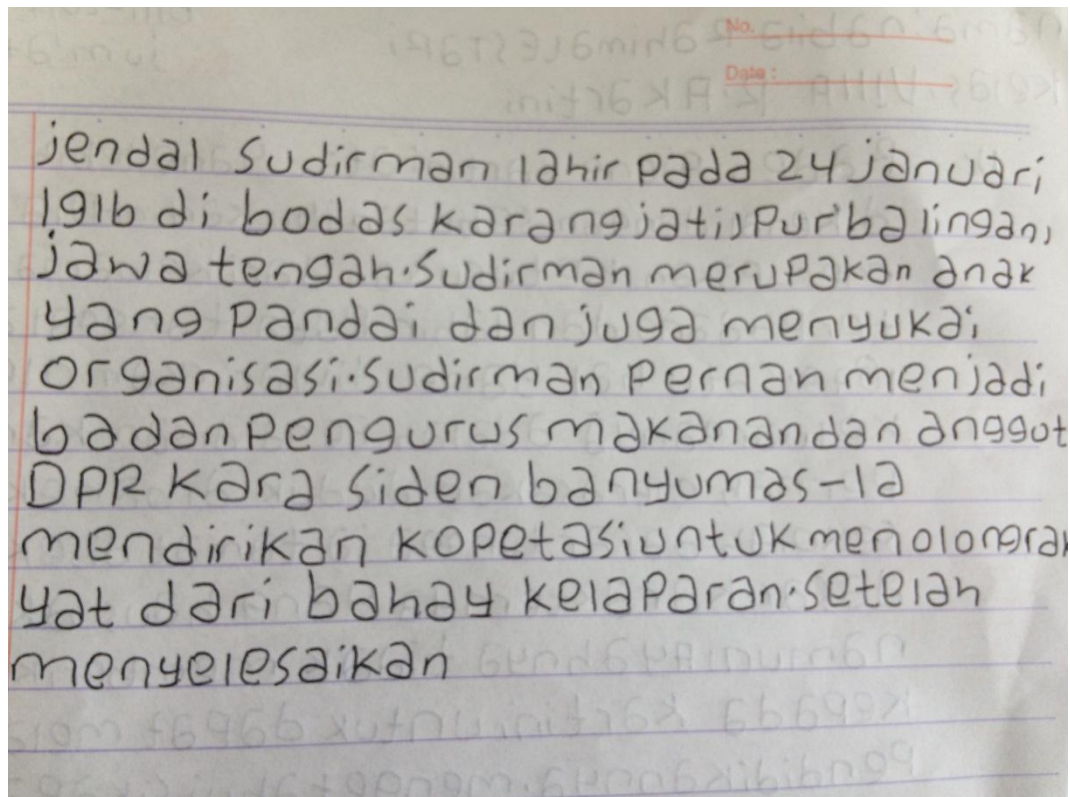 No.
Date :
jendal Sudirman lahir pada 24 januari
1916 di bodas karangjati, Purbalingan,
jawa tengah. Sudirman merupakan anak
yang Pandai dan juga menyukai
organisasi. Sudirman Pernah menjadi
badan Pengurus makanan dan anggot
DPR Kara siden banyumas-Ia
mendirikan kopetasi untuk menolongrak
yat dari bahay kelaParan. Setelah
menyelesaikan